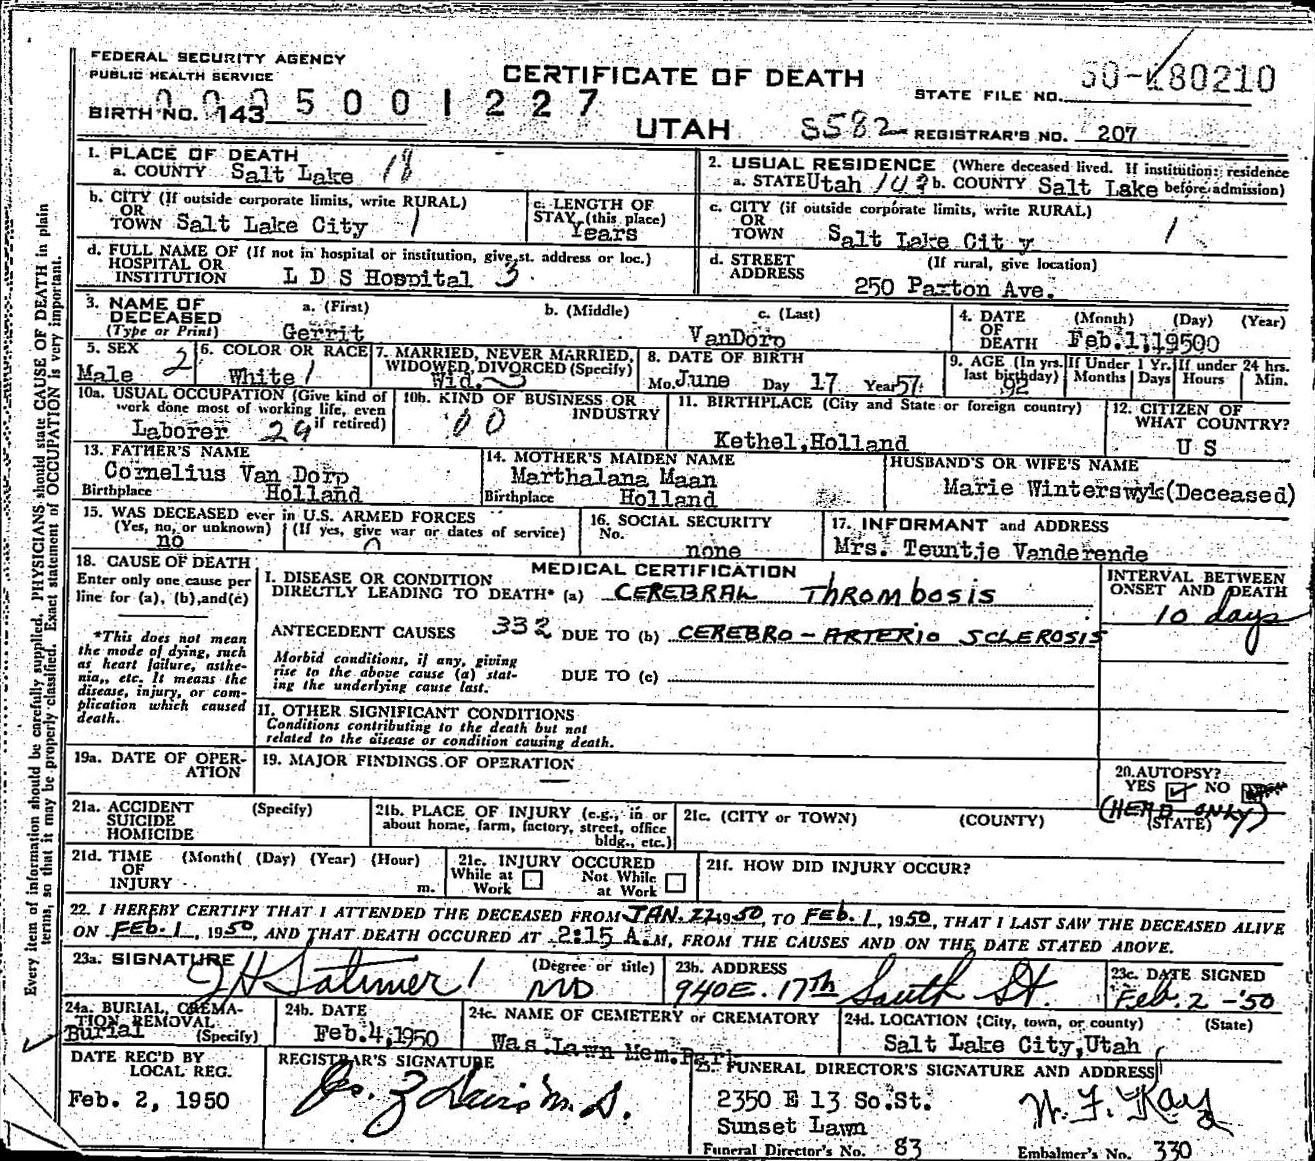 FEDERAL SECURITY AGENCY
PUBLIC HEALTH SERVICE
CERTIFICATE OF DEATH
STATE FILE NO. 50-180210
BIRTH NO. 143
0005001227
UTAH
S582 REGISTRAR'S NO. 207
1. PLACE OF DEATH
a. COUNTY Salt Lake 18
2. USUAL RESIDENCE (Where deceased lived. If institution: residence
a. STATE Utah 143 b. COUNTY Salt Lake before admission)
b. CITY (If outside corporate limits, write RURAL)
OR
TOWN Salt Lake City 1
c. LENGTH OF
STAY (this place)
Years
c. CITY (if outside corporate limits, write RURAL)
OR
TOWN Salt Lake Cit y 1
d. FULL NAME OF (If not in hospital or institution, give st. address or loc.)
HOSPITAL OR
INSTITUTION L D S Hospital 3
d. STREET (If rural, give location)
ADDRESS
250 Paxton Ave.
3. NAME OF
DECEASED
(Type or Print)
a. (First) b. (Middle) c. (Last)
Gerrit VanDorp
4. DATE (Month) (Day) (Year)
OF
DEATH Feb.1,19500
5. SEX
Male 2
6. COLOR OR RACE
White 1
7. MARRIED, NEVER MARRIED,
WIDOWED, DIVORCED (Specify)
Wid. 3
8. DATE OF BIRTH
Mo. June Day 17 Year 57
9. AGE (In yrs.
last birthday)
92
If Under 1 Yr.
Months Days
If under 24 hrs.
Hours Min.
10a. USUAL OCCUPATION (Give kind of
work done most of working life, even
if retired)
Laborer 29
10b. KIND OF BUSINESS OR
INDUSTRY
00
11. BIRTHPLACE (City and State or foreign country)
Kethel,Holland
12. CITIZEN OF
WHAT COUNTRY?
U S
13. FATHER'S NAME
Cornelius Van Dorp
Birthplace Holland
14. MOTHER'S MAIDEN NAME
Marthalana Maan
Birthplace Holland
HUSBAND'S OR WIFE'S NAME
Marie Winterswyk(Deceased)
15. WAS DECEASED ever in U.S. ARMED FORCES
(Yes, no, or unknown) (If yes, give war or dates of service)
no 0
16. SOCIAL SECURITY
No.
none
17. INFORMANT and ADDRESS
Mrs. Teuntje Vanderende
18. CAUSE OF DEATH
Enter only one cause per
line for (a), (b),and(c)
*This does not mean
the mode of dying, such
as heart failure, asthe-
nia,, etc. It means the
disease, injury, or com-
plication which caused
death.
MEDICAL CERTIFICATION
I. DISEASE OR CONDITION
DIRECTLY LEADING TO DEATH* (a) CEREBRAL THROMBOSIS
ANTECEDENT CAUSES 332 DUE TO (b) CEREBRO-ARTERIO SCLEROSIS
Morbid conditions, if any, giving
rise to the above cause (a) stat-
ing the underlying cause last.
DUE TO (c)
II. OTHER SIGNIFICANT CONDITIONS
Conditions contributing to the death but not
related to the disease or condition causing death.
INTERVAL BETWEEN
ONSET AND DEATH
10 days
19a. DATE OF OPER-
ATION
19. MAJOR FINDINGS OF OPERATION
20. AUTOPSY?
YES NO
(HEAD ONLY)
21a. ACCIDENT (Specify)
SUICIDE
HOMICIDE
21b. PLACE OF INJURY (e.g., in or
about home, farm, factory, street, office
bldg., etc.)
21c. (CITY or TOWN) (COUNTY) (STATE)
21d. TIME (Month( (Day) (Year) (Hour)
OF
INJURY m.
21e. INJURY OCCURED
While at Work Not While at Work
21f. HOW DID INJURY OCCUR?
22. I HEREBY CERTIFY THAT I ATTENDED THE DECEASED FROM JAN. 22 1950, TO FEB. 1, 1950, THAT I LAST SAW THE DECEASED ALIVE
ON FEB. 1, 1950, AND THAT DEATH OCCURED AT 2:15 A.M, FROM THE CAUSES AND ON THE DATE STATED ABOVE.
23a. SIGNATURE (Degree or title)
JH Latimer 1 MD
23b. ADDRESS
940 E. 17th South St.
23c. DATE SIGNED
Feb. 2 - '50
24a. BURIAL, CREMA-
TION REMOVAL
Burial (Specify)
24b. DATE
Feb.4,1950
24c. NAME OF CEMETERY or CREMATORY
Was.Lawn Mem.Park
24d. LOCATION (City, town, or county) (State)
Salt Lake City,Utah
DATE REC'D BY
LOCAL REG.
Feb. 2, 1950
REGISTRAR'S SIGNATURE
25. FUNERAL DIRECTOR'S SIGNATURE AND ADDRESS
2350 E 13 So.St.
Sunset Lawn
Funeral Director's No. 83 Embalmer's No. 330
Every item of information should be carefully supplied. PHYSICIANS should state CAUSE OF DEATH in plain
terms, so that it may be properly classified. Exact statement of OCCUPATION is very important.